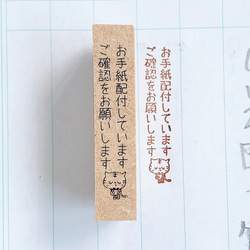 お手紙配付しています
ご確認をお願いします
お手紙配付しています
ご確認をお願いします